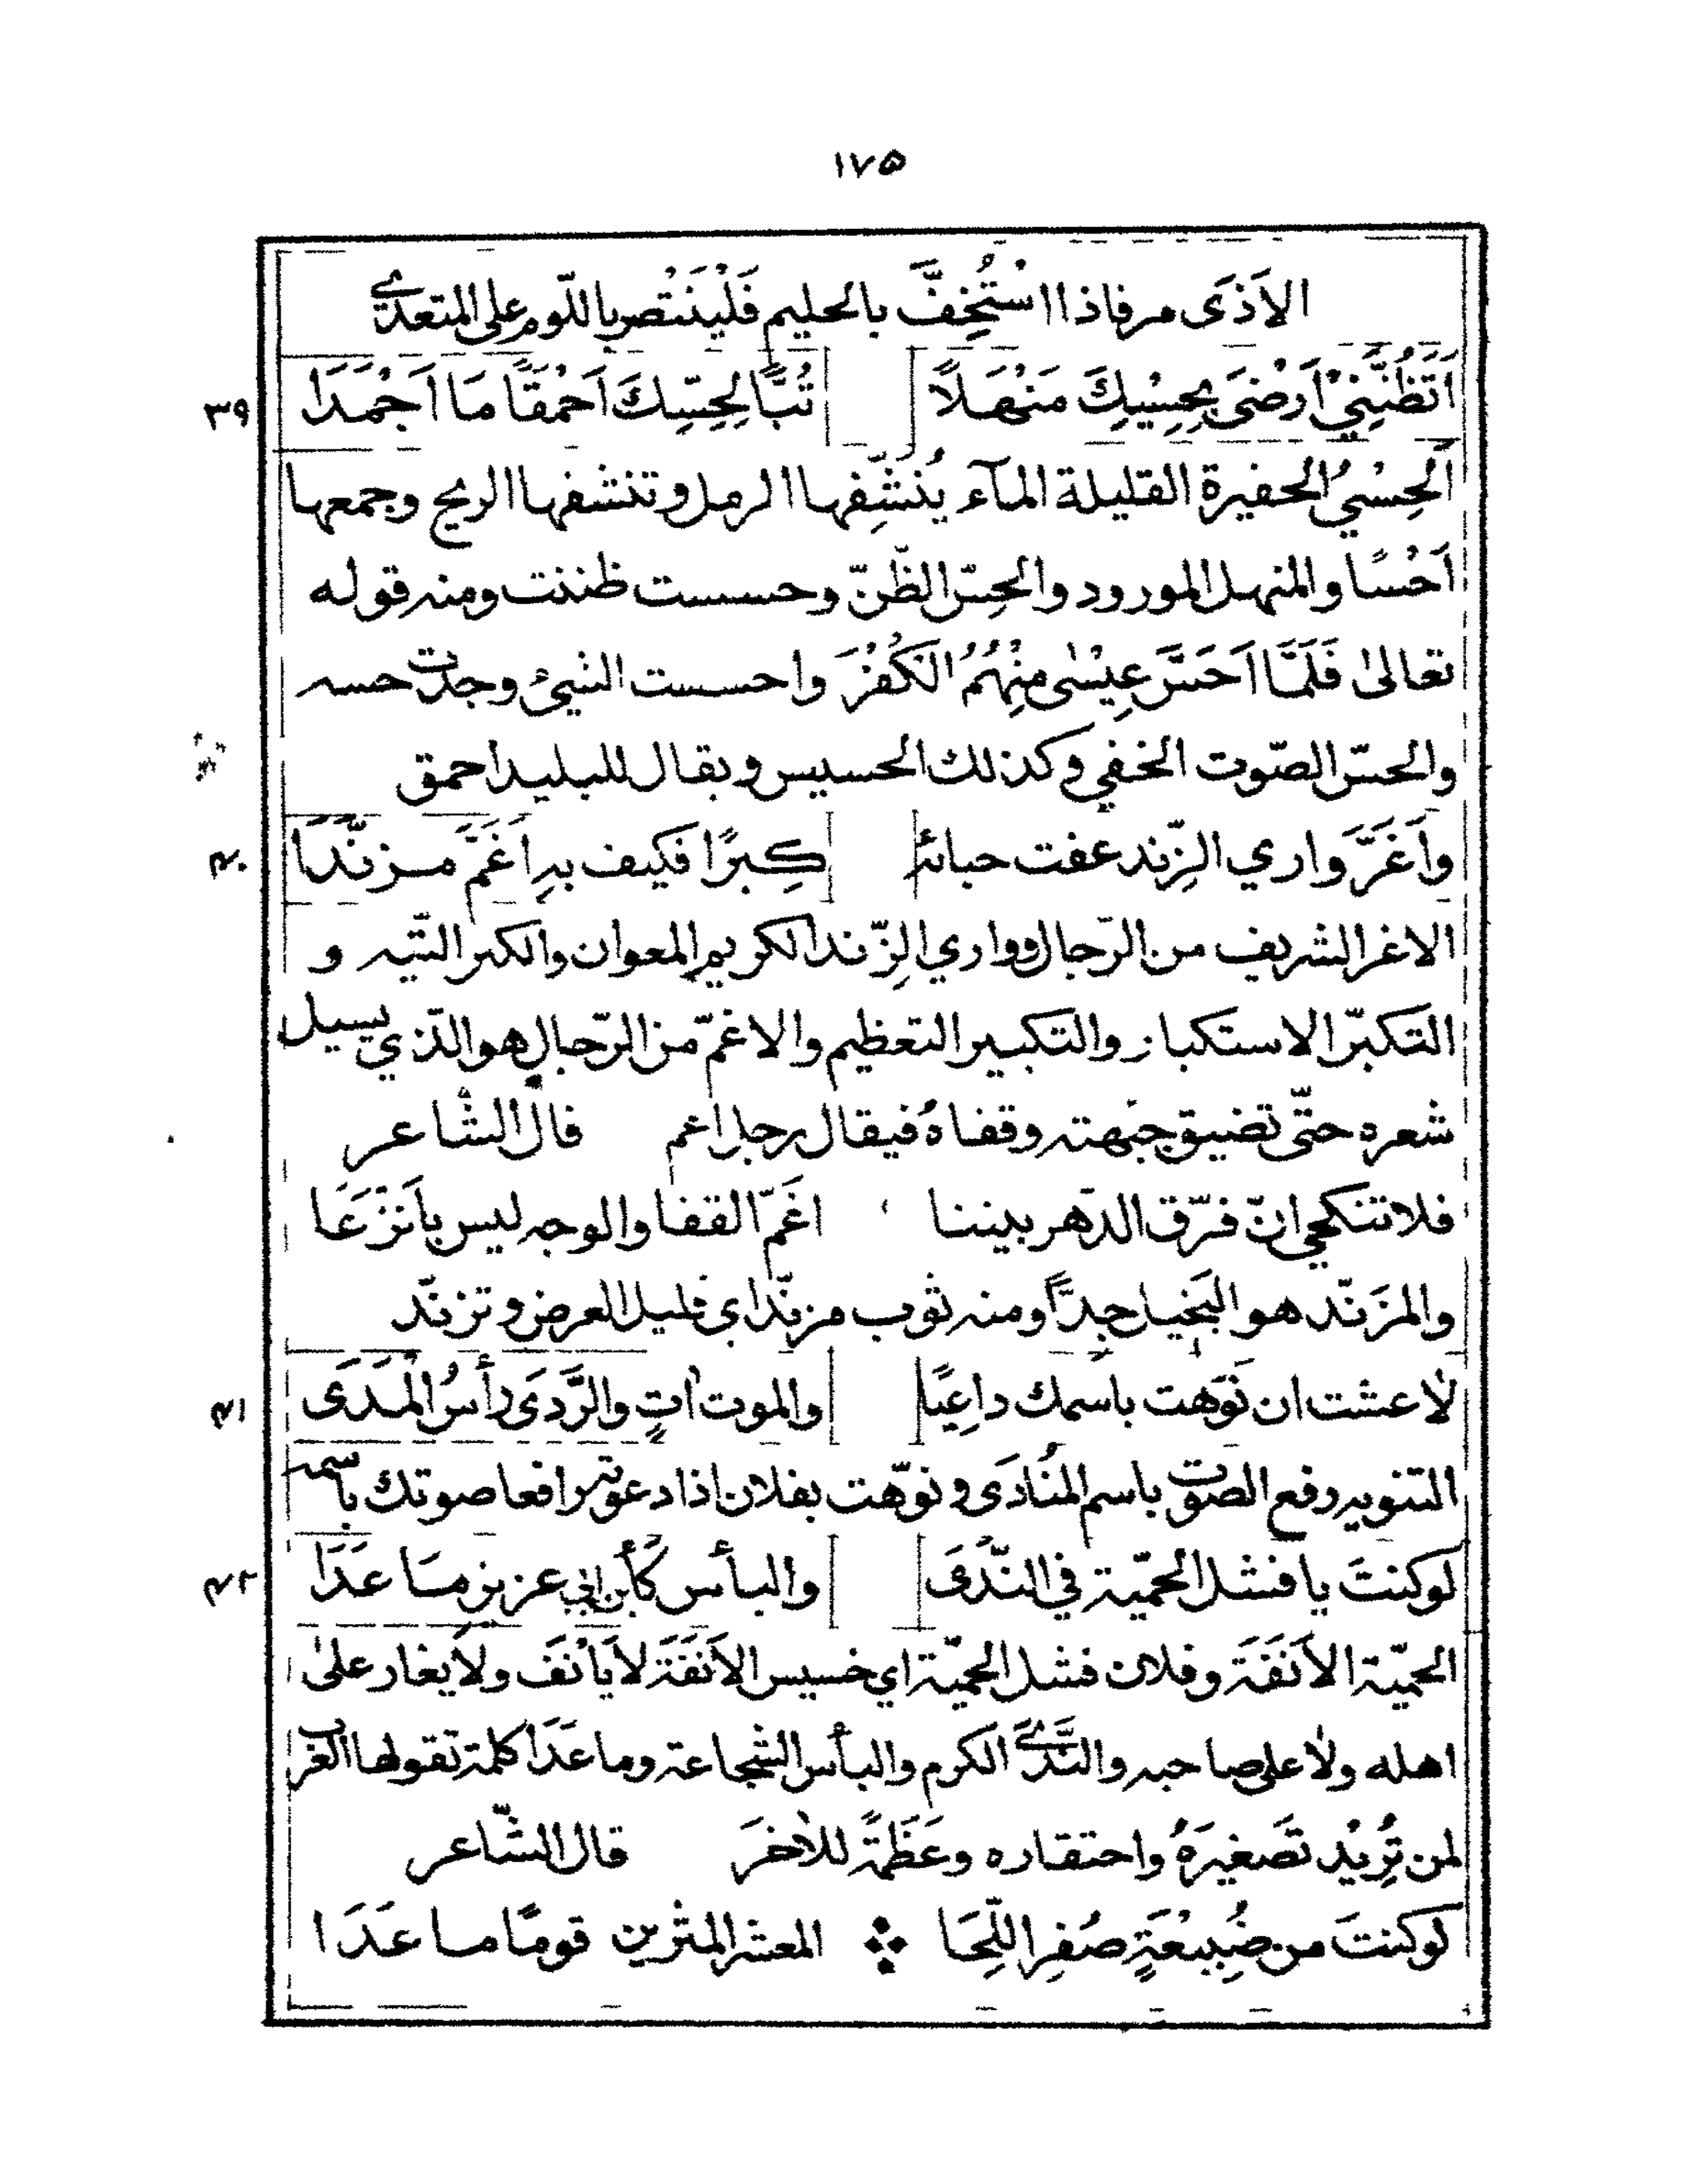 ١٧٥
الاَذَى مر فاذا اسْتُخِفَّ بالحليم فَلْيَنْتصر باللّوم على المتعدّي
٣٩ اَتَظُنُّنِيْ اَرْضَى بِحِسْيِكَ مَنْهَلًا تُبًّا لِحِسِّكَ اَحْمَقًا مَا اَجْمَدَا
اَلحِسْيُ الحفيرة القليلة المآء يُنْشِّفها الرمل وتنشفها الريح وجمعها
اَحْسًا والمنهل المورود والحِسّ الظّنّ وحسست ظننت ومنه قوله
تعالىٰ فَلَمَّا اَحَسَّ عِيْسٰى مِنْهُمُ الْكُفْرَ واحسست الشيئ وجدت حسه
والحسّ الصّوت الخفي وكذلك الحسيس ويقال للبليد احمق
٤٠ واَغَرَّ واري الزِّند عفت حبائه كِبرًا فكيف به اَغَمَّ مزنّدًا
الاغر الشريف من الرّجال وواري الزِّند الكريم المعوان والكبر التّيه و
التكبّر الاستكبار والتكبير التعظيم والاغمّ من الرّجال هو الّذي يسيل
شعره حتّى تضيق جبهته وقفاهُ فيقال رجل اغم قال الشّاعر
فلا تنكحي انّ فرّق الدّهر بيننا اغَمّ القفا والوجه ليس بأنزَعَا
والمزَنّد هو البَخيل جدًّا ومنه ثوب مزنّد اي قليل العرض وتزنّد
٤١ لا عشت ان نَوّهت باسمك داعِيًا والموت اٰتٍ والرَّدَى رأسُ الْمَدَى
التنويه رفع الصوت باسم المُنادَى ونوّهت بفلان اذا دعوته رافعا صوتك باسمه
٤٢ لوكنتَ يا فشل الحميّة في النّدَى والبأس كأبن ابي عزيز مَا عَدَا
الحميّة الاَنَفَة وفلان فشل الحميّة اي خسيس الاَنَفَة لايَأنَف ولايغار علىٰ
اهله ولا على صاحبه والنَّدَى الكرم والبأس الشجاعة وما عَدَا كلمة تقولها العرب
لمن تُرِيْد تَصغيرَهُ واحتقاره وعَظَمَةً للاٰخَر قال الشّاعر
لوكنتَ من ضُبيْعَةٍ صُفرِ اللِّحَا المعشر المثرين قومًا ما عَدَا